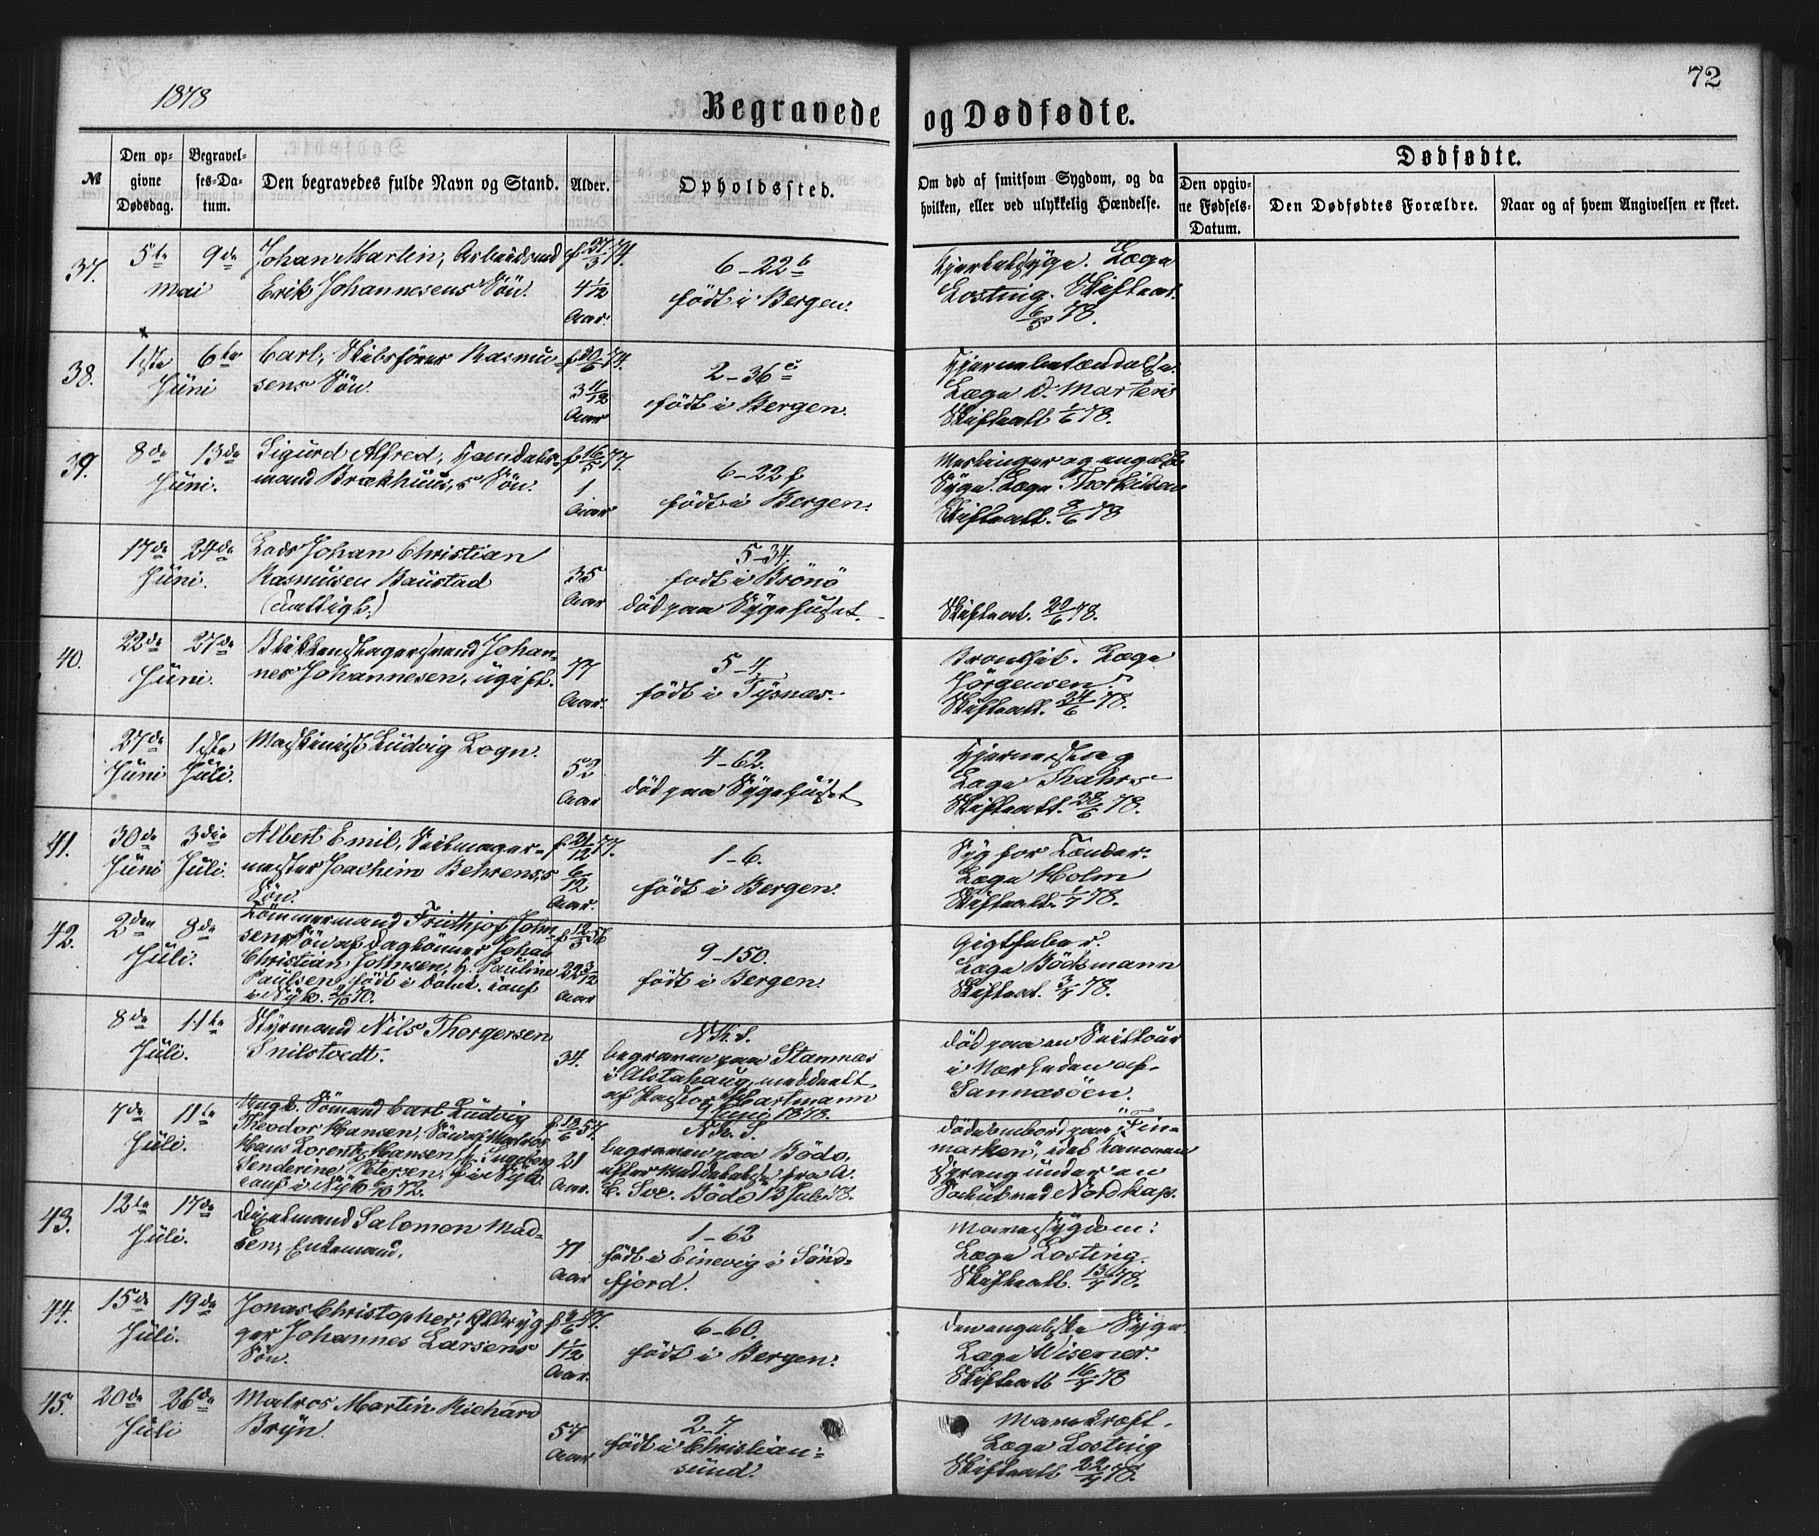 1878
72
Begravede og Dødfødte.
№
Den opgivne Dødsdag.
Begravelses-Datum.
Den begravedes fulde Navn og Stand.
Alder.
Opholdssted.
Om død af smitsom Sygdom, og da hvilken, eller ved ulykkelig Hændelse.
Dødfødte.
Den opgivne Fødsels-Datum.
Den Dødfødtes Forældre.
Naar og af hvem Angivelsen er skeet.
37.
5te Mai
9de
Johan Martin, Arbeidsmd
Erik Johannesens Søn.
f 27/3 74.
4 1/12
Aar.
6-22b
født i Bergen.
Kjertelsyge. Læge
Losting. Skifteat.
6/5 78.
38.
1ste Juni
6te
Carl, Skibsfører Rasmu-
sens Søn.
f 20/6 74.
3 11/12
Aar.
2-36c
født i Bergen.
Hjernebetændelse.
Læge D. Martens
Skifteatt 1/6 78.
39.
8de Juni.
13de
Sigurd Alfred, Handels-
mand Brækhuus,s Søn.
f 16/5 77.
1
Aar
6-22f
født i Bergen.
Meslinger og engelsk
Syge. Læge Thorkildsen
Skifteatt. 8/6 78
17de Juni.
24de
Lods Johan Christian
Rasmusen Baustad
35
Aar
5-34.
født i Brønø
død paa Sygehuset.
Skifteat. 20/6 78.
40.
22de Juni.
27de
Blikkenslagersvend Johan-
nes Johannesen, ugift.
77
Aar.
5-4
født i Tysnæs.
Bronchit. Læge
Jörgensen
Skifteatt. 24/6 78.
27de Juni
1ste Juli.
Maskinist Ludvig Logn.
52
Aar
4-62.
død paa Sygehuset
Hjerneslag
Læge
Skifteatt. 28/6 78.
41.
30de Juni
3die Juli.
Albert Emil, Seilmager-
mester Joachim Behrens,s
Søn.
f 21/12 77.
6/12
Aar.
1-6.
født i Bergen.
Syg for Tænder.
Læge Holm
Skifteatt. 1/7 78.
42.
2den Juli.
8de
Tømmermand Frithjof John-
sen, Søn af Daglønner Johan
Christian Johnsen, h. Pauline
Paulsen, født i
f 12/3 56
22 3/12
Aar
9-150.
født i Bergen.
Gigtfeber.
Læge Bödtmann
Skifteat. 3/7 78.
8de Juli.
11te
Styrmand Nils Thorgersen
Snilstvedt.
34.
N.K.S.
begraven paa Stamnæs
i Alstahaug, meddeelt
af Pastor Hartmann
9 Juni 1878.
død paa en Seiltour
i Nærheden af
Sannæsöen.
7de Juli.
11te
Ungk. Sømand Carl Ludvig
Theodor Hansen, Søn af Matros
Hans Lorentz Hansen, h. Ingeborg
Senderine Petersen,
f 12/6 57.
21
Aar.
N.K.S.
begraven paa Bodø,
efter Meddelelse fra A.
C. Sve. Bodø 13 Juli 78.
døde ombord paa "Fin-
marken", idet Kanonen
sprang under en
Salut ved Nordkap.
43.
12te Juli.
17de
Salomon Mad-
sen, Enkemand.
77
Aar
1-62
født i Einevig i Sønd-
fjord.
Mavesygdom.
Læge Losting.
Skifteatt. 13/7 78.
44.
15de Juli.
19de
Jonas Christopher, Ølbryg
ger Johannes Larsens
Søn.
1 1/12
Aar.
6-60.
født i Bergen.
den engelske Syge.
Læge Wisener.
Skifteatt 16/7 78
45.
20de Juli
26de
Matros Martin Richard
Bryn.
57
Aar
2-7.
født i Christian-
sund.
Mavekræft.
Læge Losting
Skifteatt 22/7 78.